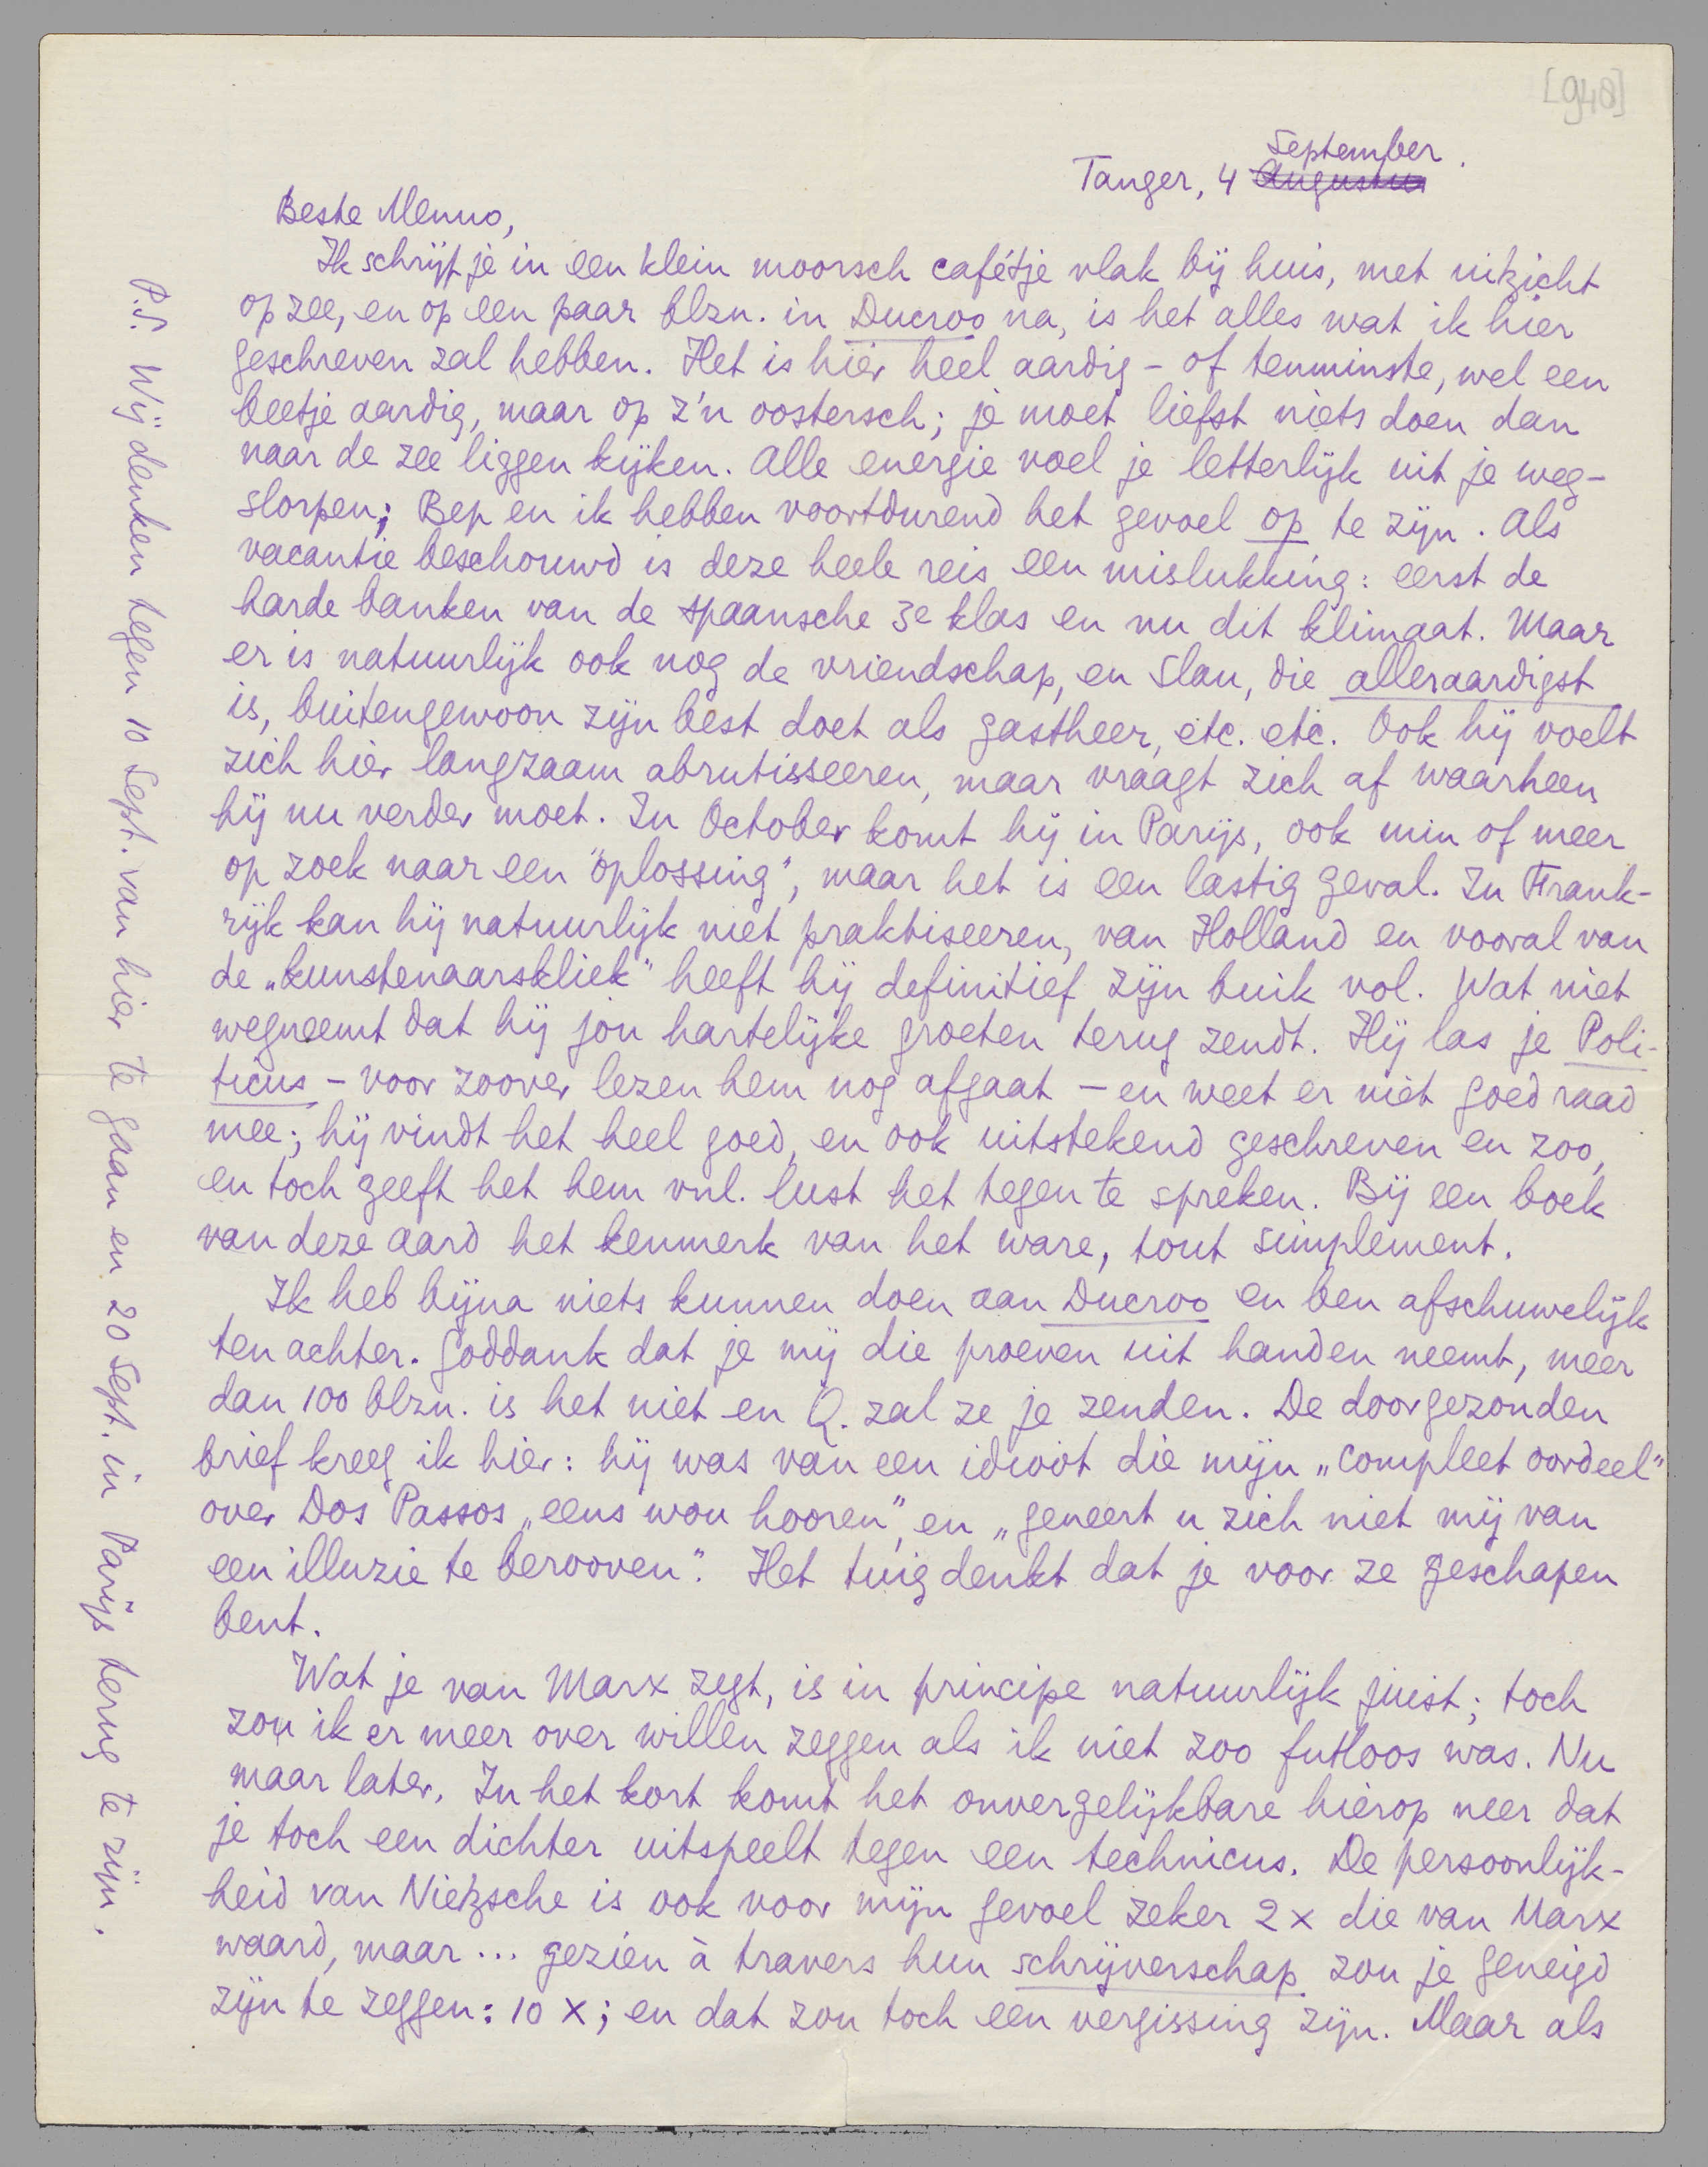 [948]
Tanger, 4 Augustus September.
Beste Menno,
Ik schrijf je in een klein moorsch cafétje vlak bij huis, met uitzicht
op zee, en op een paar blzn. in Ducroo na, is het alles wat ik hier
geschreven zal hebben. Het is hier heel aardig - of tenminste, wel een
beetje aardig, maar op z'n oostersch; je moet liefst niets doen dan
naar de zee liggen kijken. Alle energie voel je letterlijk uit je weg-
slorpen; Bep en ik hebben voortdurend het gevoel op te zijn. Als
vacantie beschouwd is deze heele reis een mislukking: eerst de
harde banken van de spaansche 3e klas en nu dit klimaat. Maar
er is natuurlijk ook nog de vriendschap, en Slau, die alleraardigst
is, buitengewoon zijn best doet als gastheer, etc. etc. Ook hij voelt
zich hier langzaam abrutisseeren, maar vraagt zich af waarheen
hij nu verder moet. In October komt hij in Parijs, ook min of meer
op zoek naar een "oplossing", maar het is een lastig geval. In Frank-
rijk kan hij natuurlijk niet praktiseeren, van Holland en vooral van
de „kunstenaarskliek" heeft hij definitief zijn buik vol. Wat niet
wegneemt dat hij jou hartelijke groeten terug zendt. Hij las je Poli-
ticus - voor zoover lezen hem nog afgaat - en weet er niet goed raad
mee; hij vindt het heel goed, en ook uitstekend geschreven en zoo,
en toch geeft het hem vnl. lust het tegen te spreken. Bij een boek
van deze aard het kenmerk van het ware, tout simplement.
Ik heb bijna niets kunnen doen aan Ducroo en ben afschuwelijk
ten achter. Goddank dat je mij die proeven uit handen neemt, meer
dan 100 blzn. is het niet en Q. zal ze je zenden. De doorgezonden
brief kreeg ik hier: hij was van een idioot die mijn „compleet oordeel"
over Dos Passos „eens wou hooren", en „geneert u zich niet mij van
een illuzie te berooven". Het tuig denkt dat je voor ze geschapen
bent.
Wat je van Marx zegt, is in principe natuurlijk juist; toch
zou ik er meer over willen zeggen als ik niet zoo futloos was. Nu
maar later. In het kort komt het onvergelijkbare hierop neer dat
je toch een dichter uitspeelt tegen een technicus. De persoonlijk-
heid van Nietzsche is ook voor mijn gevoel zeker 2 x die van Marx
waard, maar... gezien à travers hun schrijverschap zou je geneigd
zijn te zeggen: 10 x; en dat zou toch een vergissing zijn. Maar als
P.S. Wij denken tegen 10 Sept. van hier te gaan en 20 Sept. in Parijs terug te zijn.